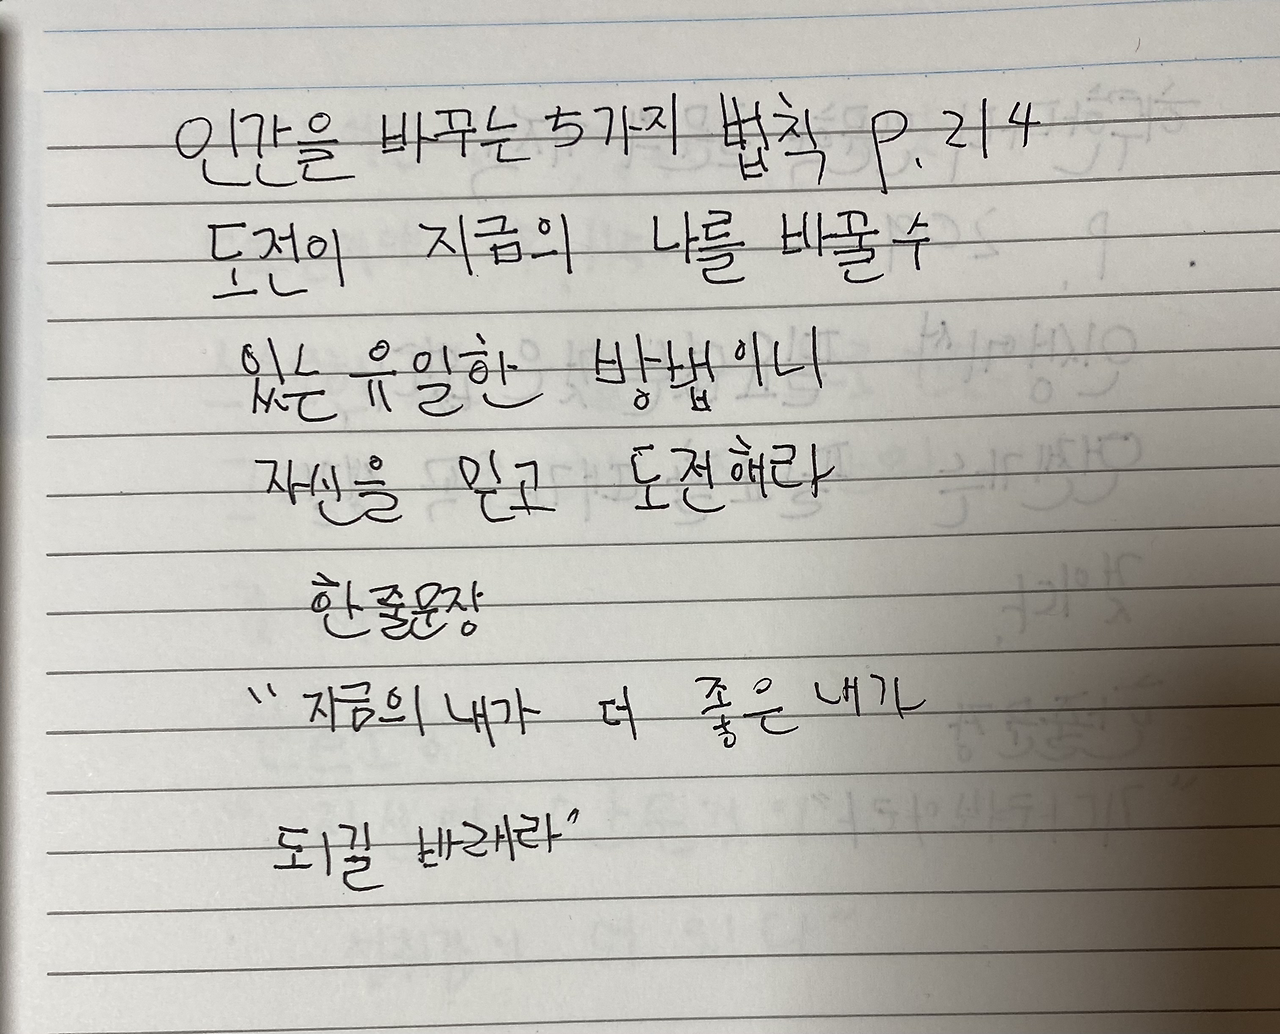 인간을 바꾸는 5가지 법칙 p.214
도전이 지금의 나를 바꿀 수
있는 유일한 방법이니
자신을 믿고 도전해라
한줄문장
"지금의 내가 더 좋은 내가
되길 바래라"